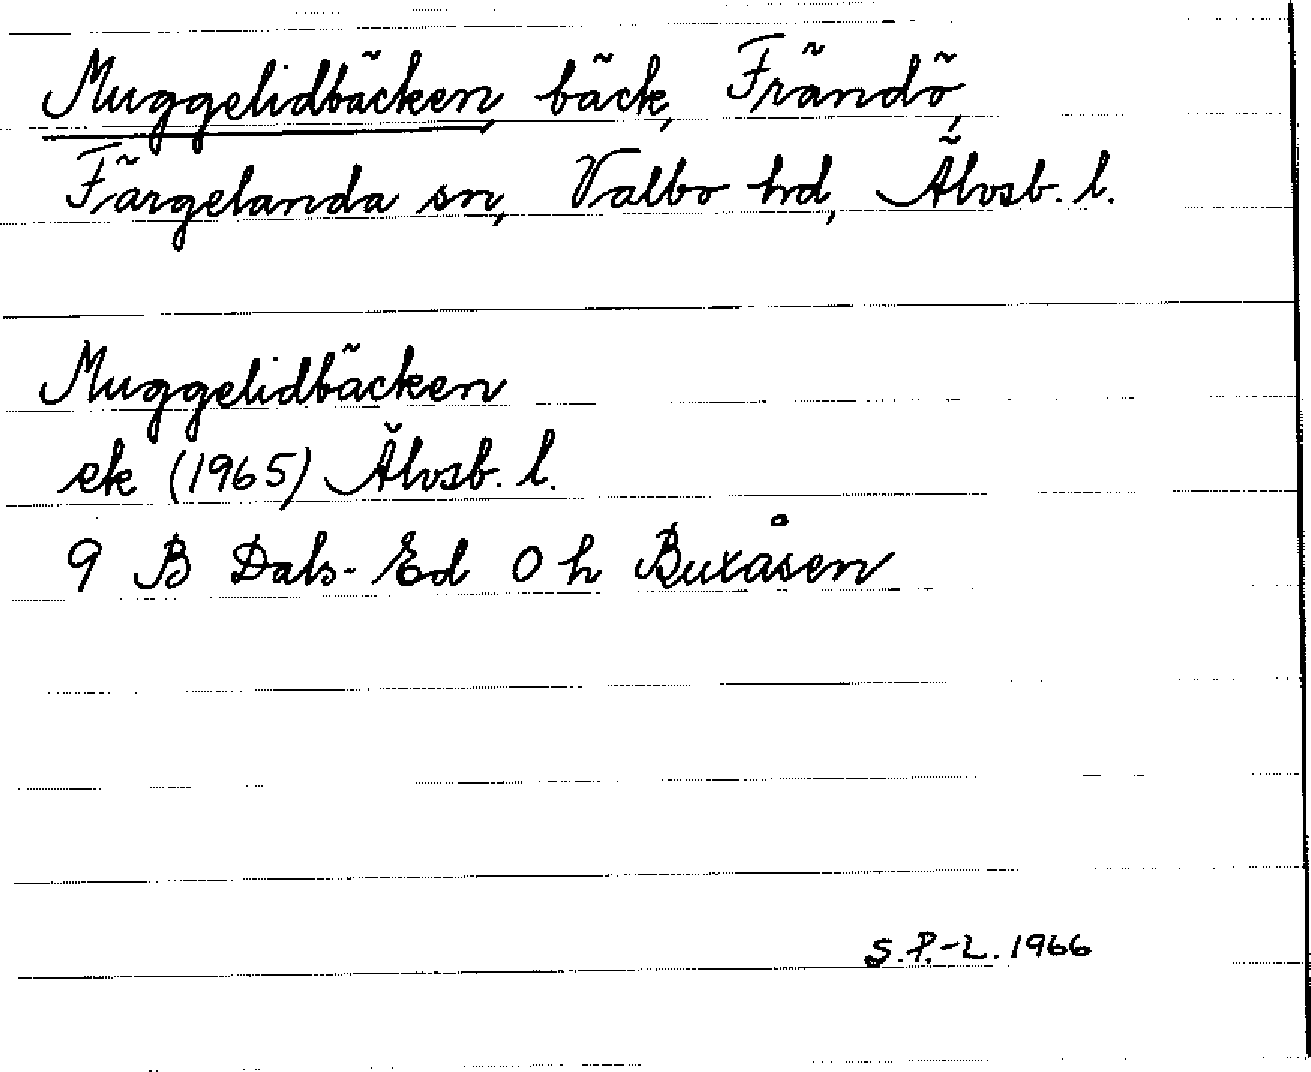 Muggelidbäcken, bäck, Frändö,
Färgelanda sn, Valbo hd, Älvsb. l.
Muggelidbäcken
ek (1965) Älvsb. l.
9 B Dals-Ed 0 h Buxåsen
S. P.-L. 1966